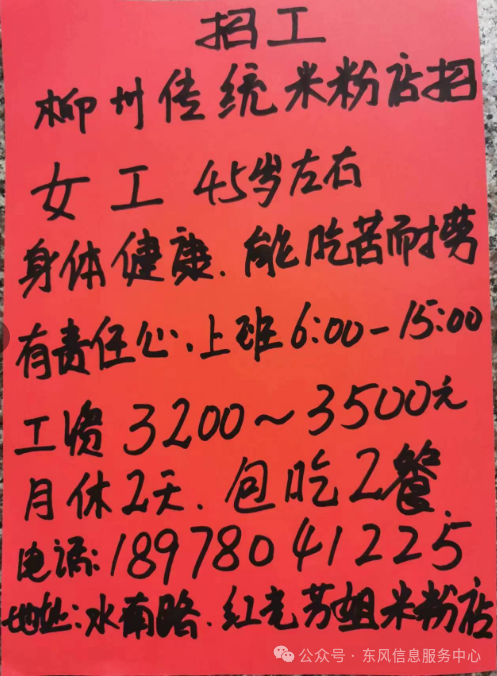 招工
柳州传统米粉店招
女工 45岁左右
身体健康.能吃苦耐劳
有责任心.上班6:00-15:00
工资3200~3500元
月休2天.包吃2餐.
电话:18978041225
地址:水南路.红光芳姐米粉店
公众号·东风信息服务中心